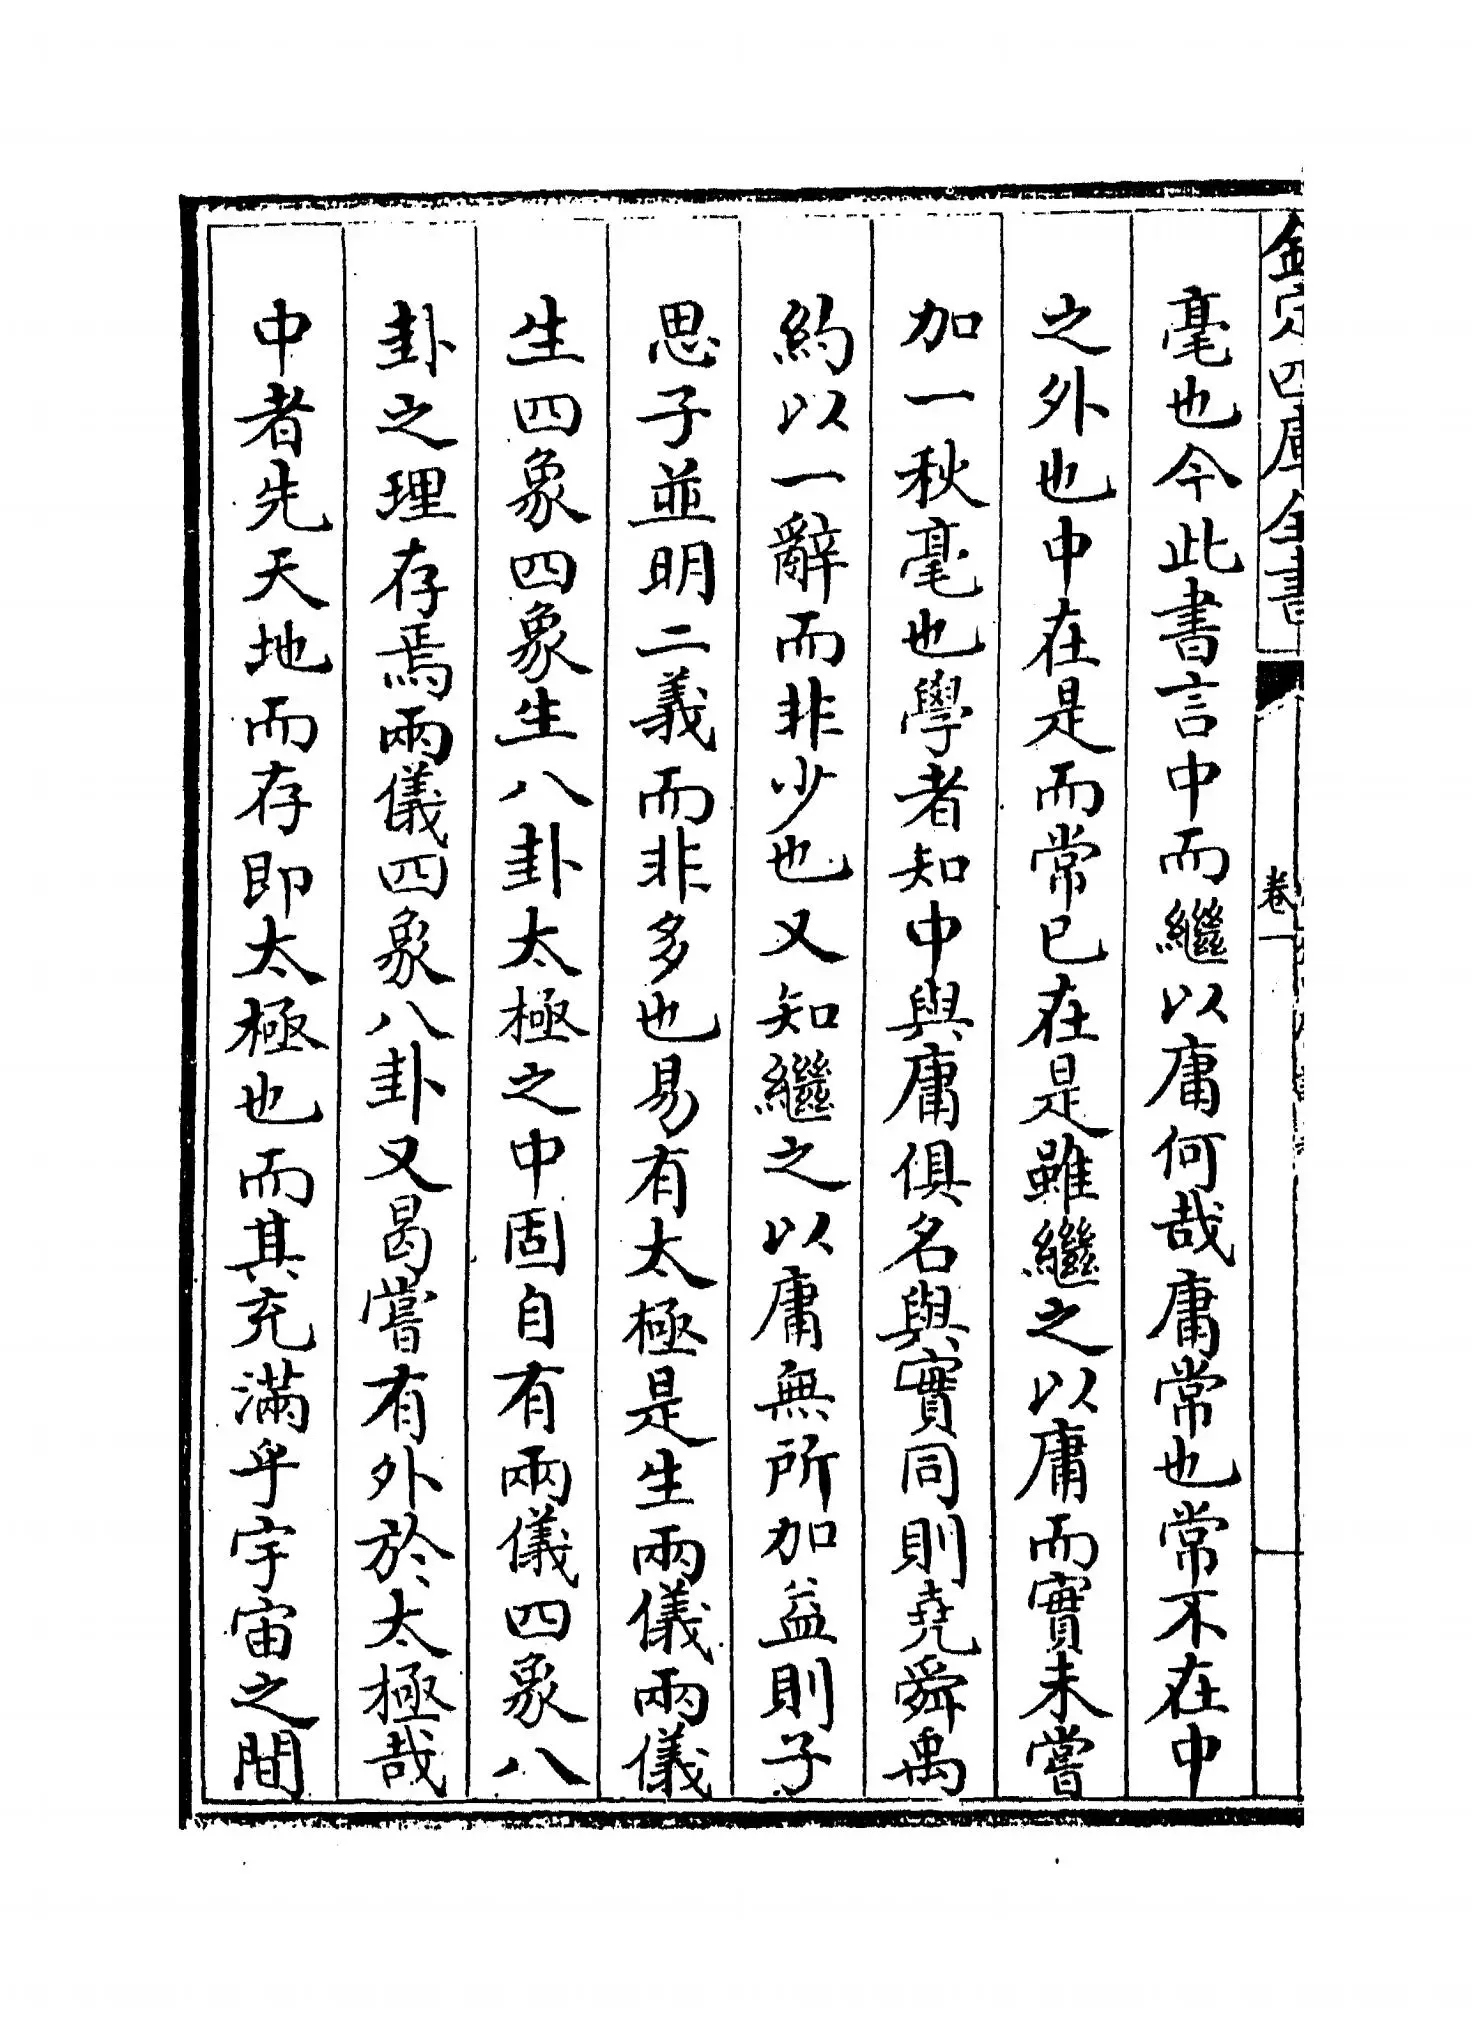 欽定四庫全書
卷一
毫也今此書言中而繼以庸何哉庸常也常不在中
之外也中在是而常已在是雖繼之以庸而實未嘗
加一秋毫也學者知中與庸俱名與實同則堯舜禹
約以一辭而非少也又知繼之以庸無所加益則子
思子並明二義而非多也易有太極是生兩儀兩儀
生四象四象生八卦太極之中固自有兩儀四象八
卦之理存焉兩儀四象八卦又曷嘗有外於太極哉
中者先天地而存即太極也而其充滿乎宇宙之間